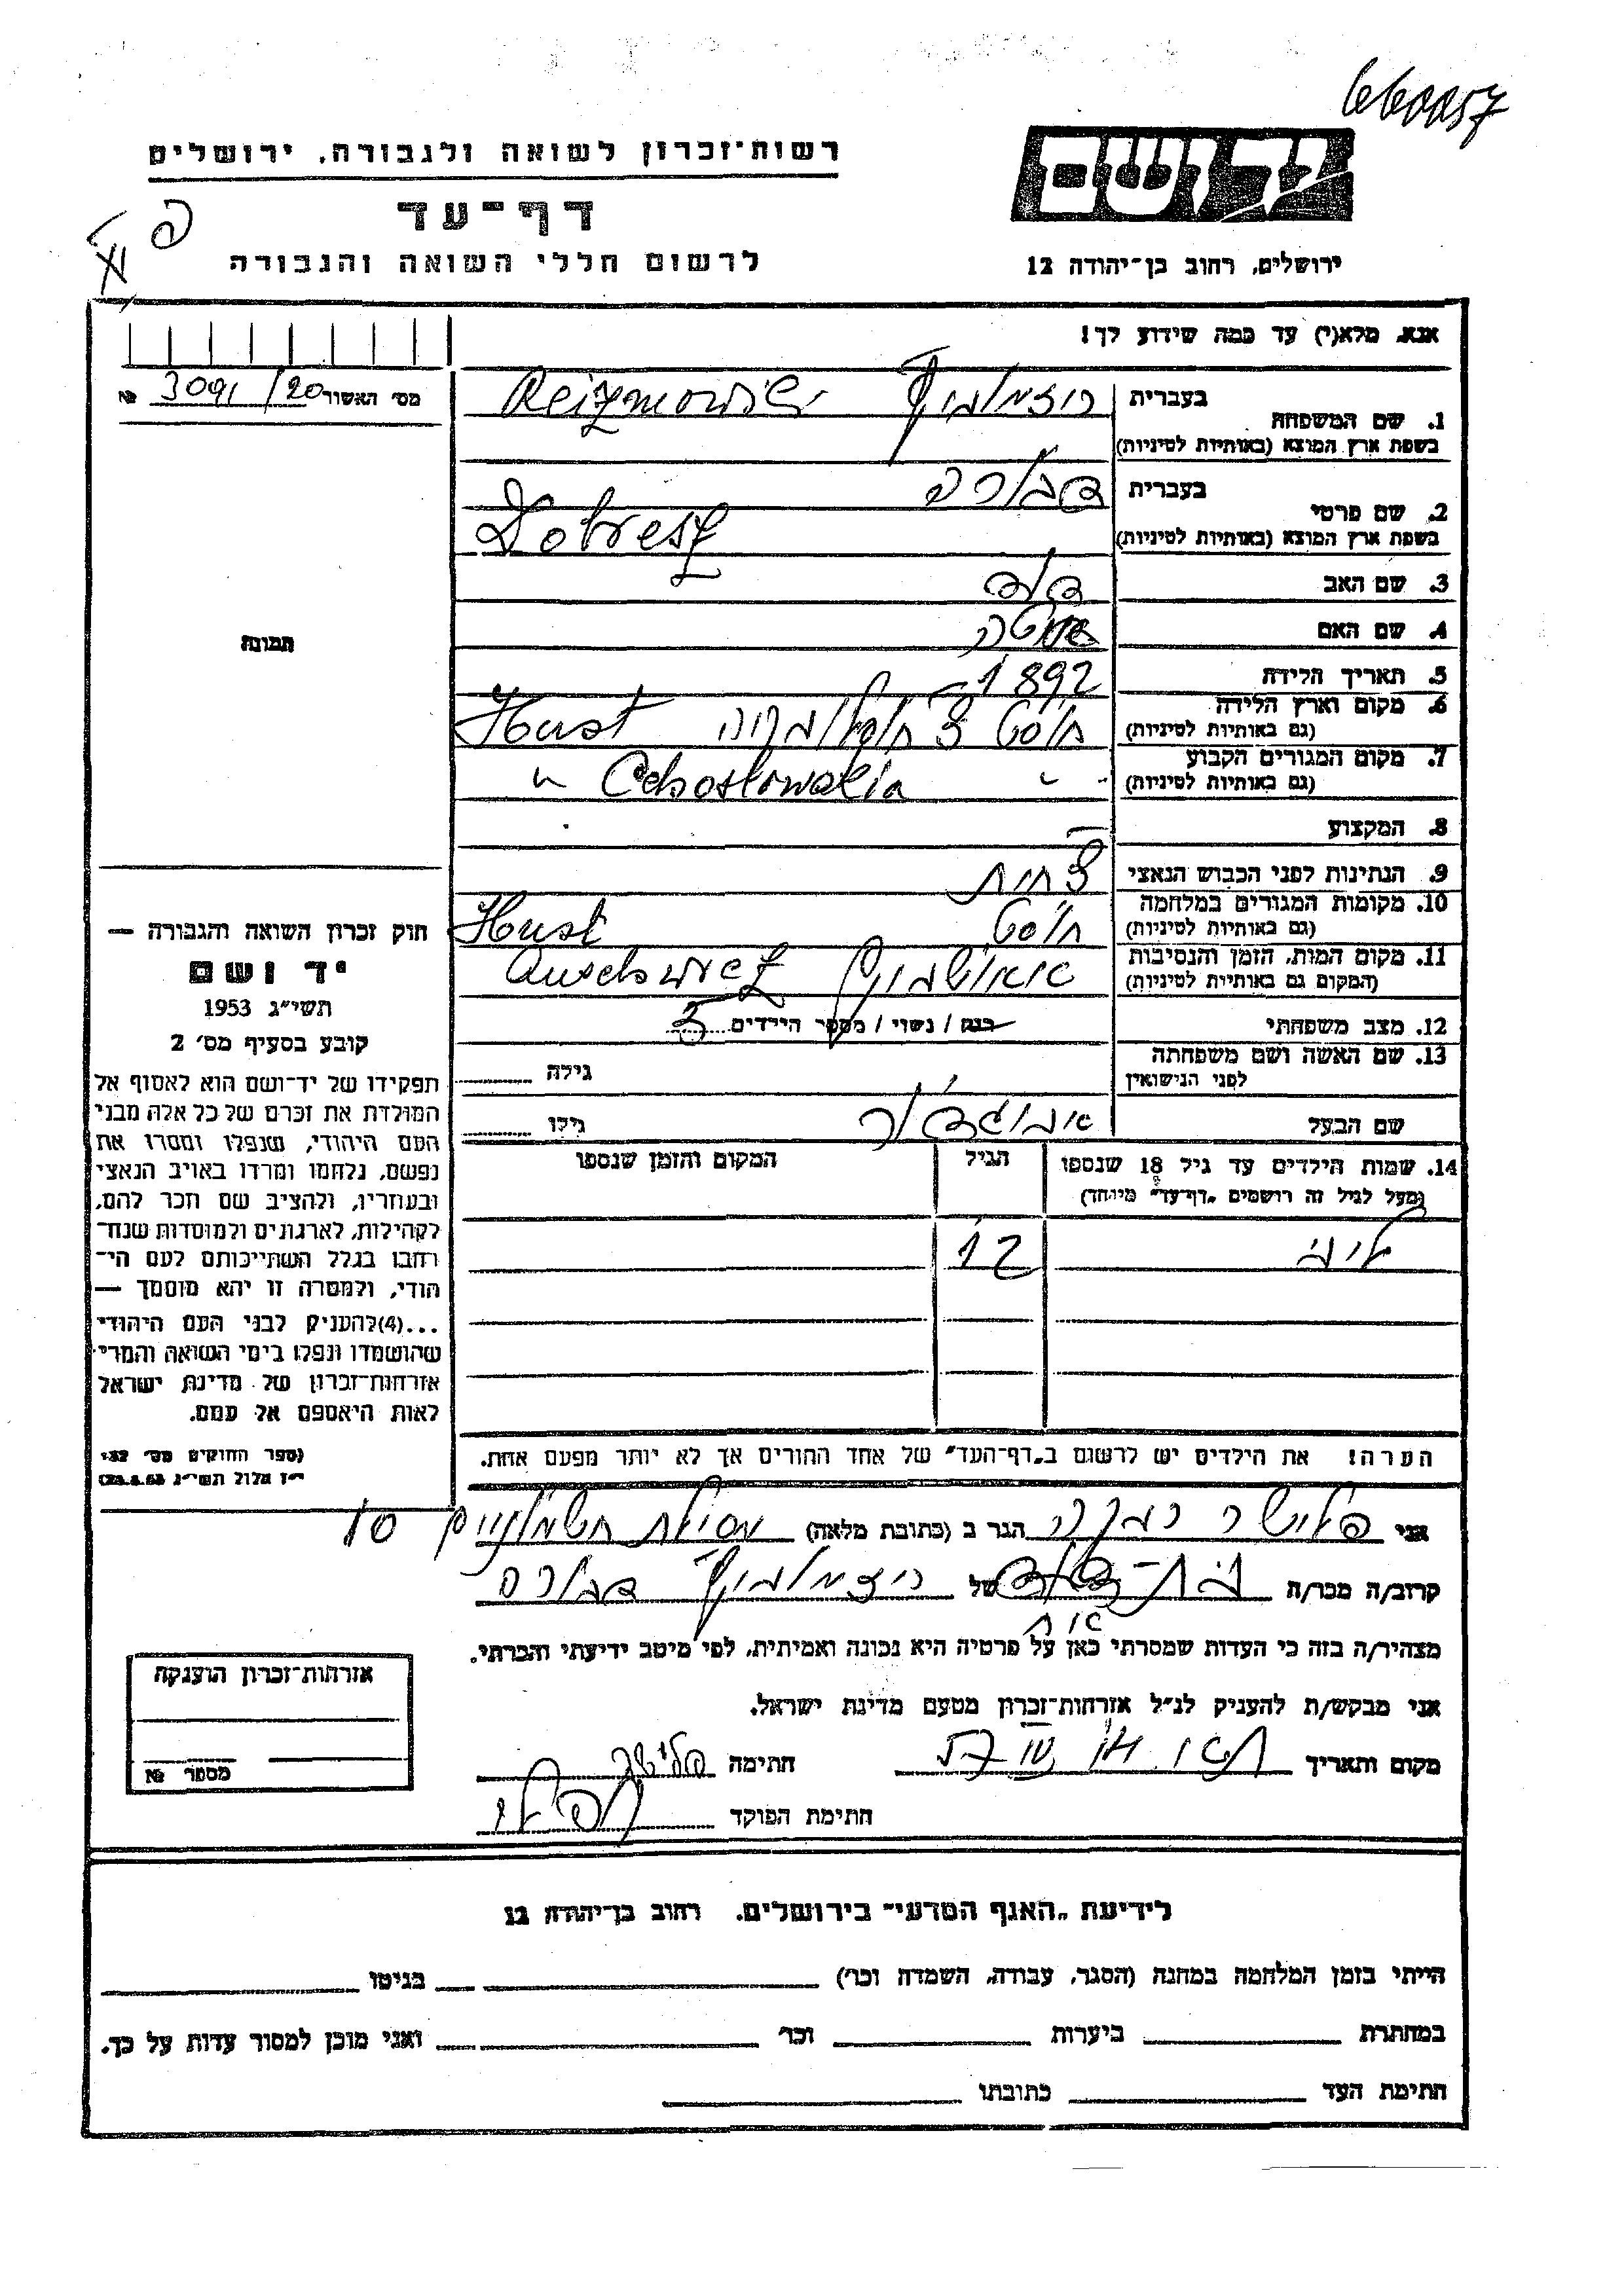 660057
יד ושם
ירושלים, רחוב בן־יהודה 12
רשות־זכרון לשואה ולגבורה, ירושלים
דף־עד
לרשום חללי השואה והגבורה
אנא, מלא(י) עד כמה שידוע לך!
מס׳ האשור 3091/20 №
תמונה
1. שם המשפחה בעברית רייזמוביץ Reizmowisz
בשפת ארץ המוצא (באותיות לטיניות)
2. שם פרטי בעברית דבורה
בשפת ארץ המוצא (באותיות לטיניות) Dobresz
3. שם האב דוד
4. שם האם
5. תאריך הלידה 1892
6. מקום וארץ הלידה חוסט צ׳כוסלובקיה Hust
(גם באותיות לטיניות)
7. מקום המגורים הקבוע " Cehoslowakia "
(גם באותיות לטיניות)
8. המקצוע —
9. הנתינות לפני הכבוש הנאצי צ׳כית
10. מקומות המגורים במלחמה חוסט Hust
(גם באותיות לטיניות)
11. מקום המות, הזמן והנסיבות אאושוויץ Auschwiez
(המקום גם באותיות לטיניות)
12. מצב משפחתי רווק / נשוי / מספר הילדים
13. שם האשה ושם משפחתה גילה
לפני הנישואין
שם הבעל אביגדור גילו
14. שמות הילדים עד גיל 18 שנספו הגיל המקום והזמן שנספו
(מעל לגיל זה רושמים „דף־עד" מיוחד)
12
הערה! את הילדים יש לרשום ב„דף־העד" של אחד ההורים אך לא יותר מפעם אחת.
חוק זכרון השואה והגבורה —
יד ושם
תשי״ג 1953
קובע בסעיף מס׳ 2
תפקידו של יד־ושם הוא לאסוף אל
המולדת את זכרם של כל אלה מבני
העם היהודי, שנפלו ומסרו את
נפשם, נלחמו ומרדו באויב הנאצי
ובעוזריו, ולהציב שם וזכר להם,
לקהילות, לארגונים ולמוסדות שנח־
רבו בגלל השתייכותם לעם הי־
הודי, ולמטרה זו יהא מוסמך —
...(4)להעניק לבני העם היהודי
שהושמדו ונפלו בימי השואה והמרי
אזרחות־זכרון של מדינת ישראל
לאות היאספם אל עמם.
(ספר החוקים מס׳ 132
י״ז אלול תשי״ג 28.8.53)
אני פלישר רבקה הגר ב (כתובת מלאה)
קרוב/ה מכר/ה בת־דודה של רייזמוביץ דבורה
מצהיר/ה בזה כי העדות שמסרתי כאן על פרטיה היא נכונה ואמיתית, לפי מיטב ידיעתי והכרתי.
אני מבקש/ת להעניק לנ״ל אזרחות־זכרון מטעם מדינת ישראל.
מקום ותאריך חתימה פלישר
חתימת הפוקד
אזרחות־זכרון הוענקה
מספר №
לידיעת „האגף המדעי" בירושלים, רחוב בן־יהודה 12
הייתי בזמן המלחמה במחנה (הסגר, עבודה, השמדה וכו׳) בגיטו
במחתרת ביערות וכו׳ ואני מוכן למסור עדות על כך.
חתימת העד כתובתו